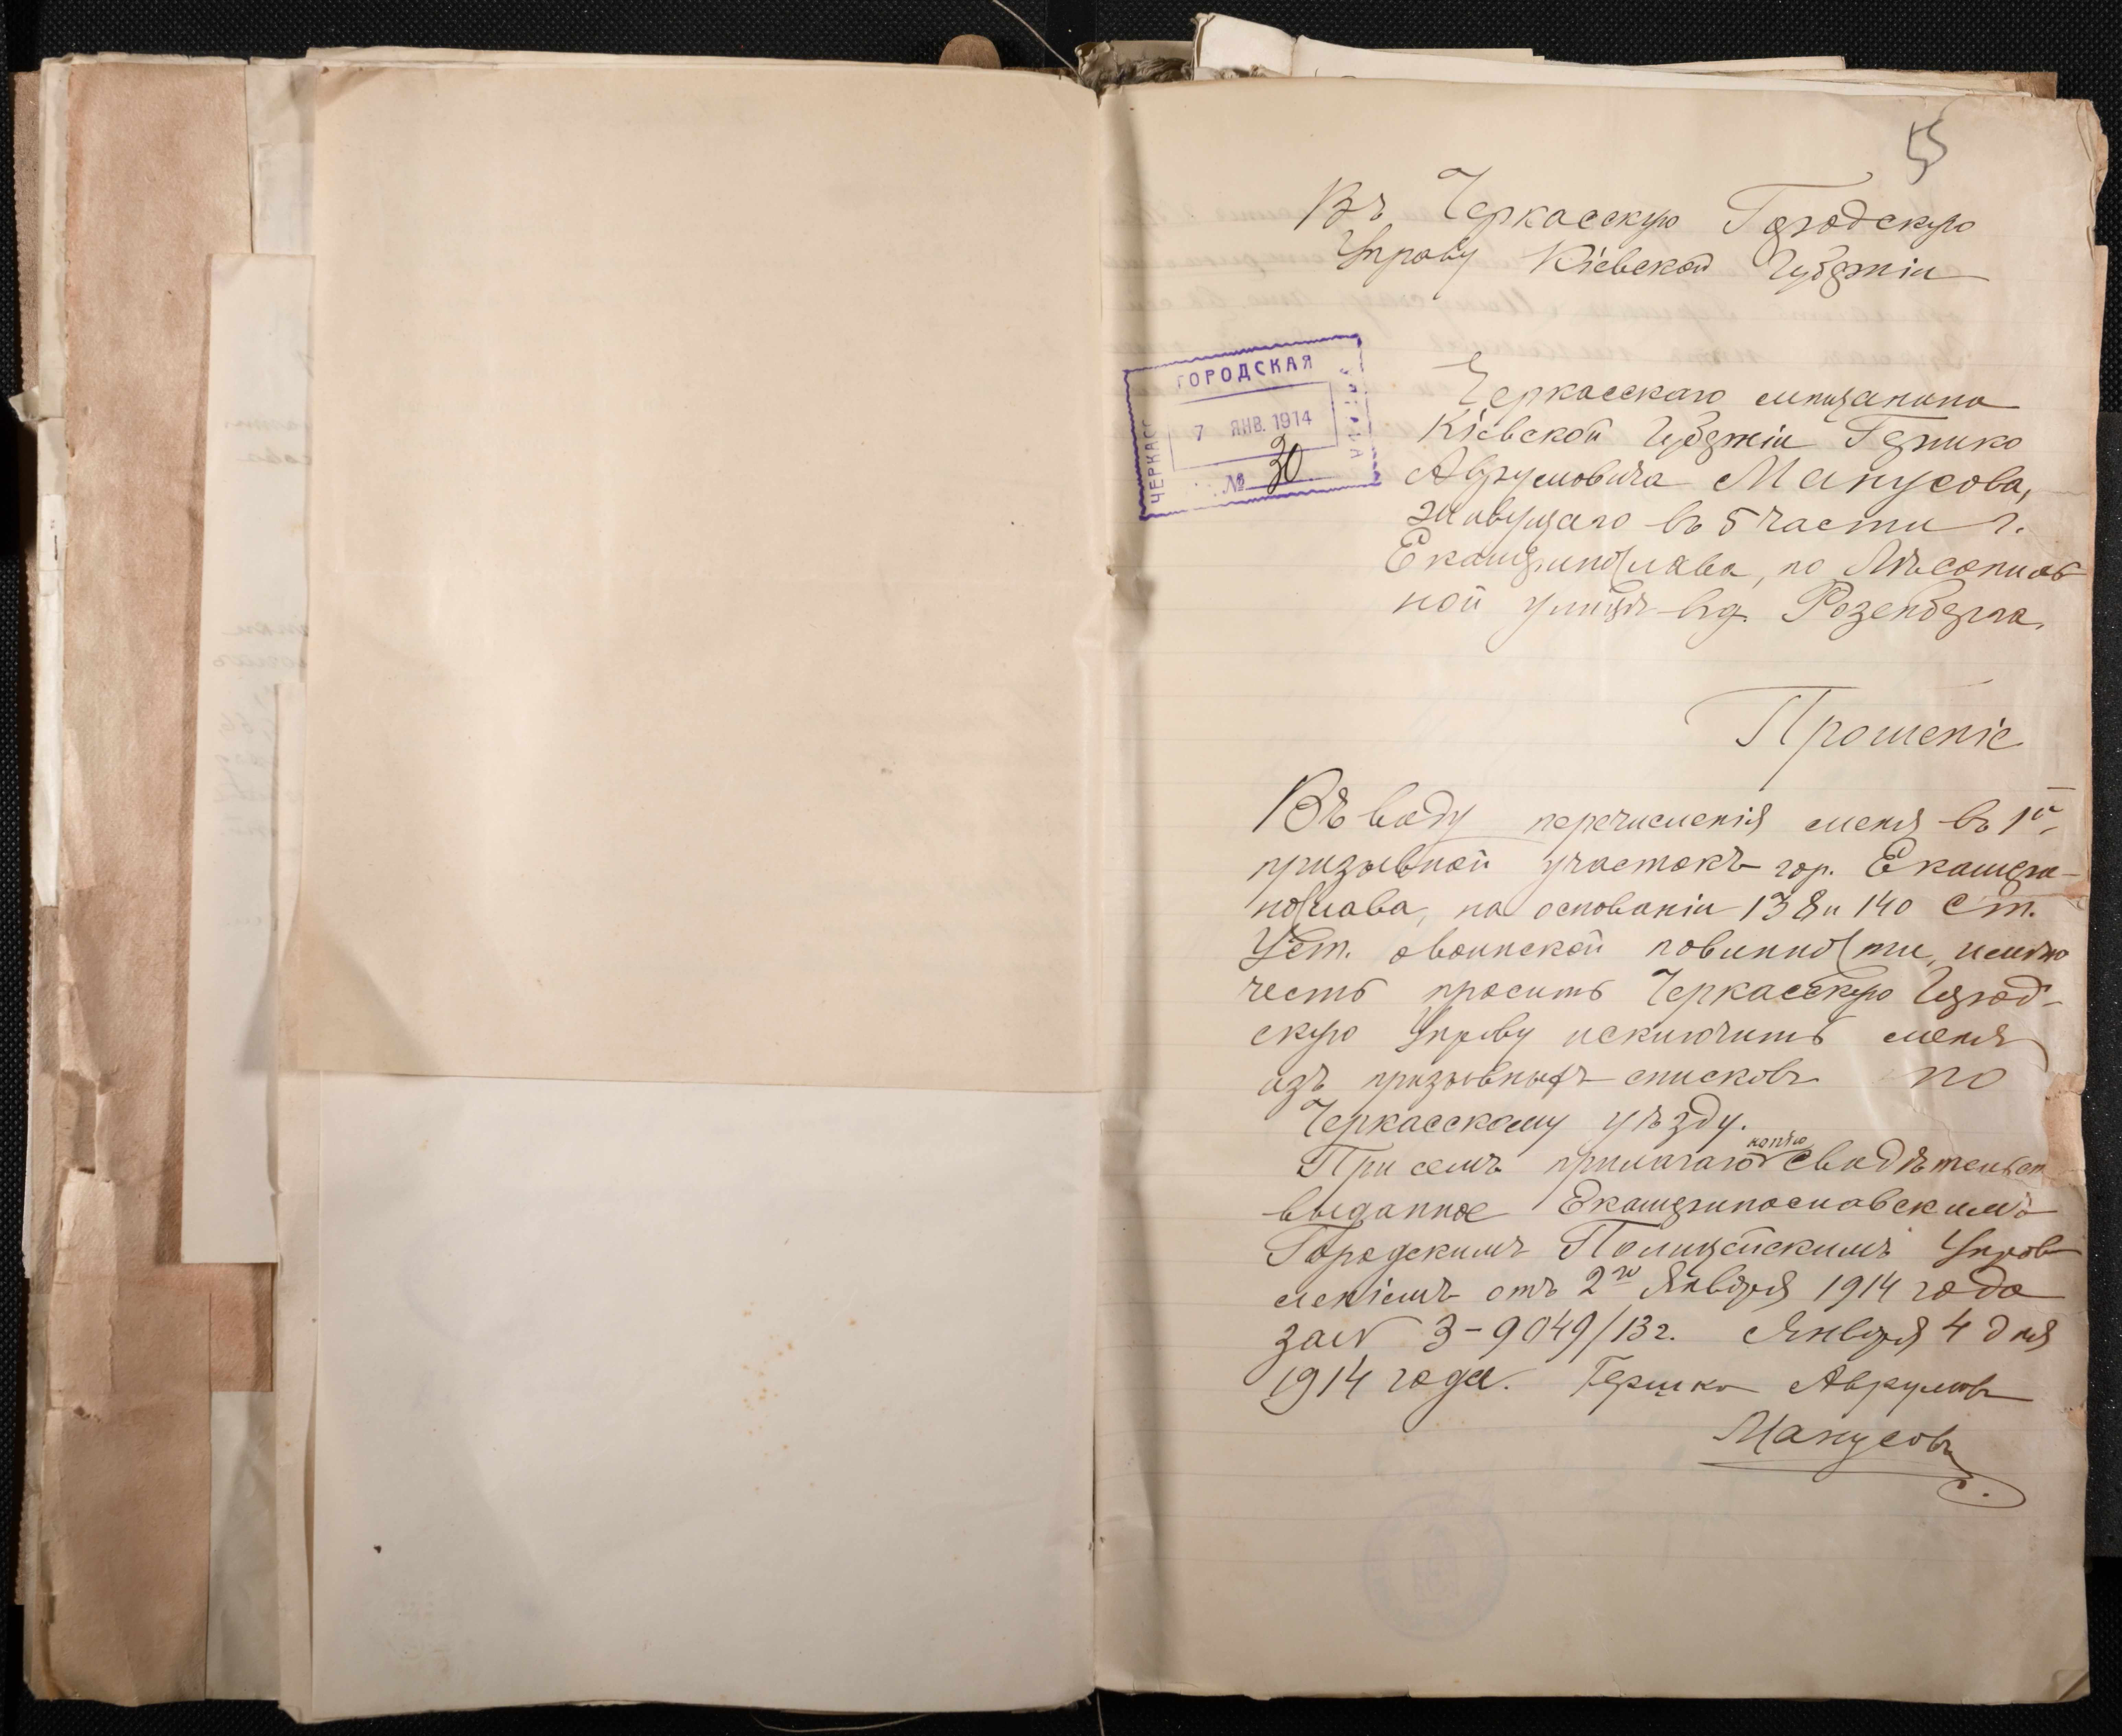 55
Въ Черкасскую Городскую
Управу Кіевской Губерніи
ГОРОДСКАЯ
ЧЕРКАСС
7 ЯНВ. 1914
№ 30
Черкасскаго мѣщанина
Кіевской Губерніи Гершко
Аврумовича Манусова,
живущаго въ 5 части г.
Екатеринослава, по Лѣсопиль
ной улицѣ въ д. Розенберга.
Прошеніе
Въ виду перечисленія меня въ 1й
призывной участокъ гор. Екатери-
нослава, на основаніи 138 и 140 ст.
Уст. о воинской повинности, имѣю
честь просить Черкасскую Город-
скую Управу исключить меня
изъ призывныхъ списковъ по
Черкасскому уѣзду.
При семъ прилагаю копію свидѣтельст
выданное Екатеринославскимъ
Городскимъ Полицейскимъ Управ
леніемъ отъ 2го Января 1914 года
за № 3-9049/13 г. Января 4 дня
1914 года. Гершко Аврумовъ
Манусовъ